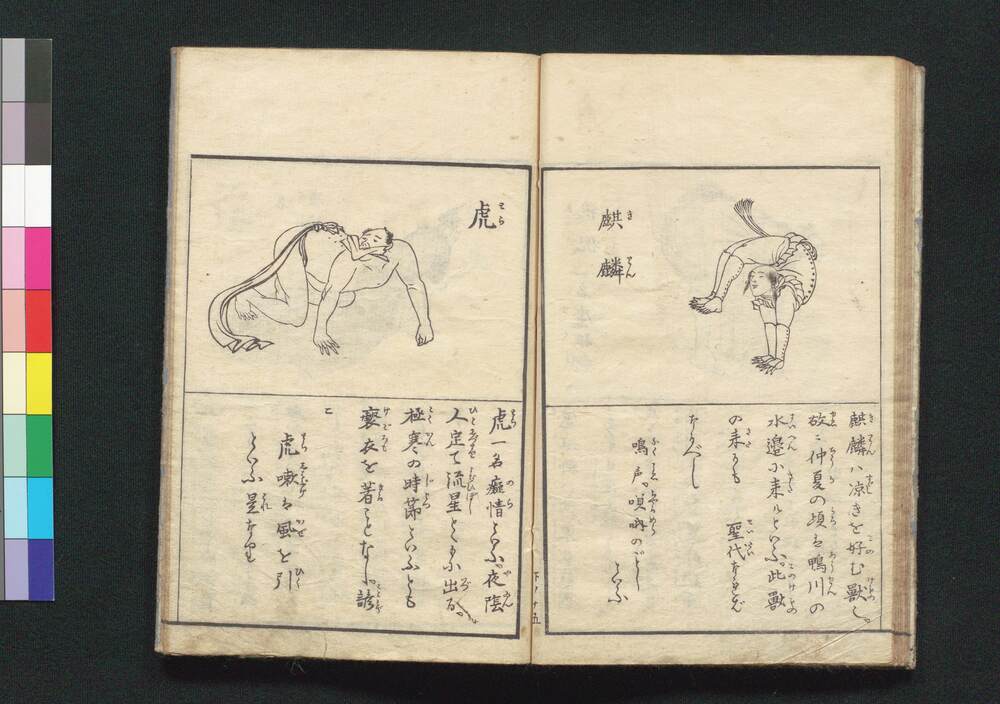 麒麟
きりん
麒麟ハ凉きを好む獣也。
故ニ仲夏の頃は鴨川の
水邉に来ルといふ。此獣
の来るも
聖代なれば
なるべし
鳴声。唄
のごとし
といふ
下ノ十五
虎
とら
虎一名癡情といふ。夜陰
人定て流星とともに出る。
極寒の時節といふとも
褻衣を着ことなし。諺
に
虎嗽は風を引
といふ是なり